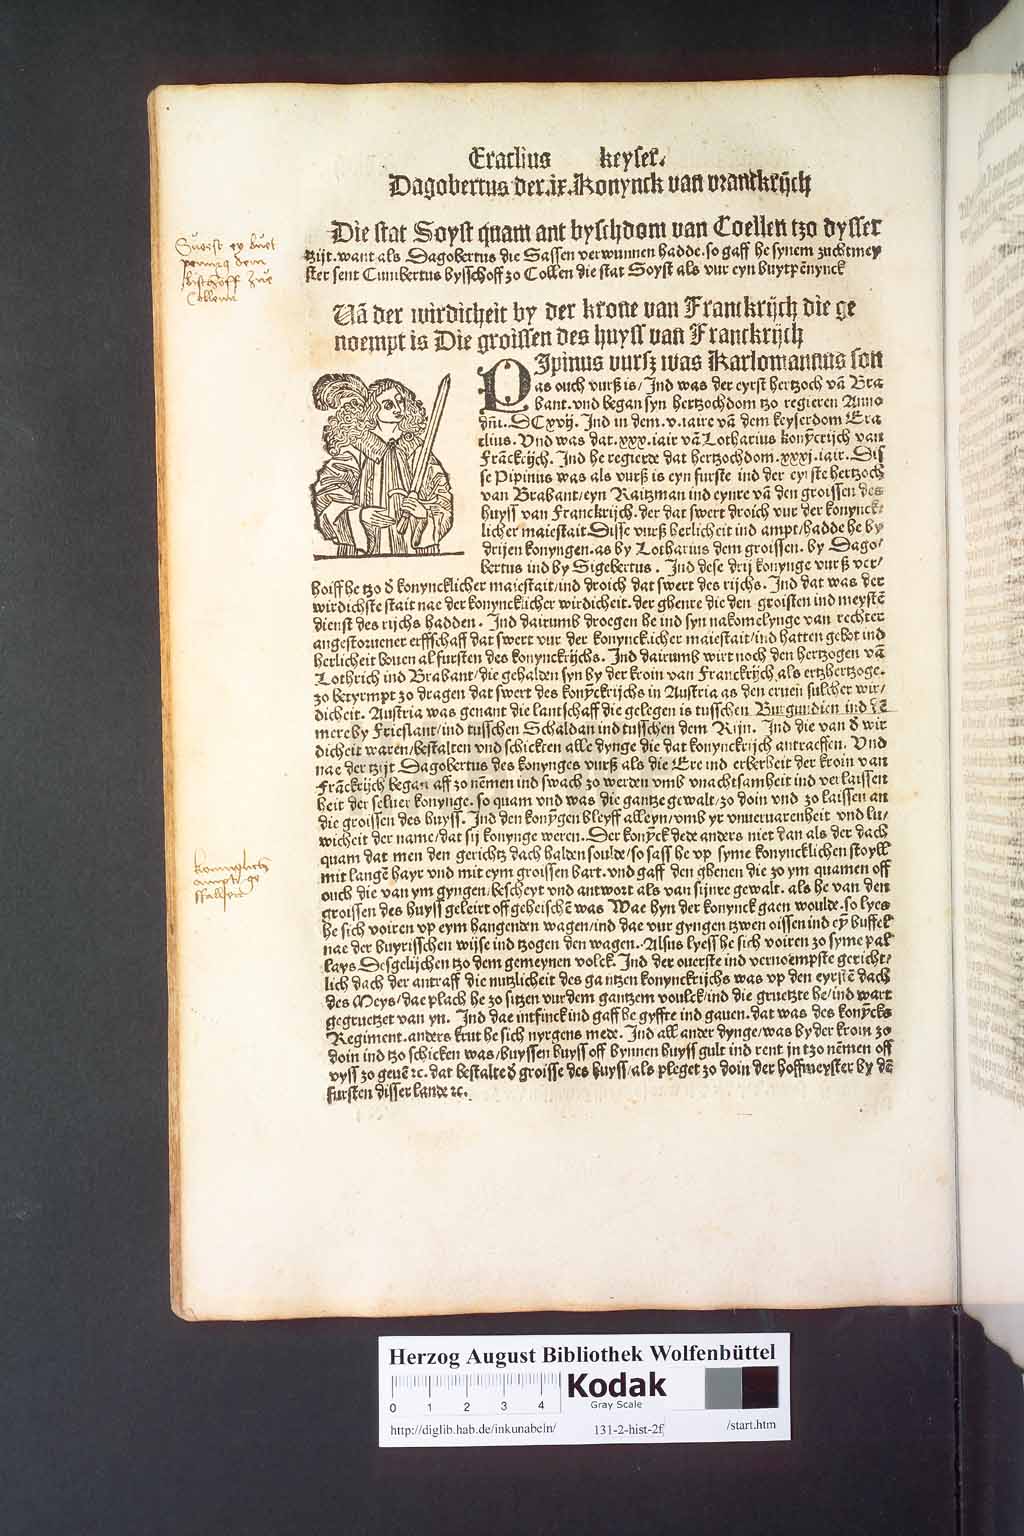 Eraclius keyser.
Dagobertus der.ix.Konynck van vranckrijch
Die stat Soyst quam ant byschdom van Coellen tzo dysser
tzijt. want als Dagobertus die Sassen verwunnen hadde. so gaff he synem zuchtmey
ster sent Cunibertus bysschoff zo Collen die stat Soyst als vur eyn buytpēnynck
Vā der wirdicheit by der krone van Franckrijch die ge
noempt is Die groissen des huyss van Franckrijch
PIpinus vursz was Karlomannus son
as ouch vurß is/ Ind was der eyrst hertzoch vā Bra
bant. vnd began syn hertzochdom tzo regieren Anno
dñi. DCxvij. Ind in dem. v. iaire vā dem keyserdom Era
clius. Vnd was dat. xxx. iair vā Lotharius konȳcrijch van
Frāckrijch. Ind he regierde dat hertzochdom. xxxj. iair. Dis
se Pipinus was als vurß is eyn furste ind der eyrste hertzoch
van Brabant/ eyn Raitzman ind eynre vā den groissen des
huyss van Franckrijch. der dat swert droich vur der konynck-
licher maiestait Disse vurß herlicheit ind ampt/ hadde he by
drijen konyngen. as by Lotharius dem groissen. by Dago/
bertus ind by Sigebertus. Ind dese drij konynge vurß ver/
hoiff he tzo d konyncklicher maiestait/ ind droich dat swert des rijchs. Ind dat was der
wirdichste stait nae der konyncklicher wirdicheit. der ghenre die den groisten ind meystē
dienst des rijchs hadden. Ind dairumb droegen he ind syn nakomelynge van rechter
angestoruener erffschaff dat swert vur der konynck.icher maiestait/ ind hatten gebot ind
herlicheit bouen al fursten des konynckrijchs. Ind dairumb wirt noch den hertzogen vā
Lothrich ind Brabant/ die gehalden syn by der kroin van Franckrijch als ertzhertzoge.
zo bezympt zo dragen dat swert des konȳckrijchs in Austria as den eruen sulcher wir/
dicheit. Austria was genant die lantschaff die gelegen is tusschen Burgundien ind dē
mere by Frieslant/ ind tusschen Schaldan ind tusschen dem Rijn. Ind die van d wir
dicheit waren/ bestalten vnd schickten alle dynge die dat konynckrijch antraffen. Vnd
nae der tzijt Dagobertus des konynges vurß als die Ere ind erberheit der kroin van
Frāckrijch began aff zo nēmen ind swach zo werden vmb vnachtsamheit ind verlaissen
heit der seluer konynge. so quam vnd was die gantze gewalt/ zo doin vnd zo laissen an
die groissen des huyss. Ind den konȳgen bleyff alleyn/ vmb yr vnueruarenheit vnd lu/
wicheit der name/ dat sij konynge weren. Der konȳck dede anders niet dan als der dach
quam dat men den gerichtz dach halden soulde/ so sass he vp syme konyncklichen stoyll
mit langē hayr vnd mit eym groissen bart. vnd gaff den ghenen die zo ym quamen off
ouch die van ym gyngen/ bescheyt vnd antwort als van sijnre gewalt. als he van den
groissen des huyss geleirt off geheischē was Wae hyn der konynck gaen woulde. so lyes
he sich voiren vp eym hangenden wagen/ ind dae vur gyngen tzwen oissen ind eȳ buffel
nae der buyrisschen wijse ind tzogen den wagen. Alsus lyess he sich voiren zo syme pal
lays Desgelijchen tzo dem gemeynen volck. Ind der ouerste ind vernoempste gericht/
lich dach der antraff die nutzlicheit des gantzen konynckrijchs was vp den eyrstē dach
des Meys/ dae plach he zo sitzen vur dem gantzem voulck/ ind die gruetzte he/ ind wart
gegruetzet van yn. Ind dae intfinck ind gaff he gyffte ind gauen. dat was des konȳcks
Regiment. anders krut he sich nyrgens mede. Ind all ander dynge/ was by der kroin zo
doin ind tzo schicken was/ buyssen huyss off bynnen huyss gult ind rent in tzo nēmen off
vyss zo geuē ꝛc. dat bestalte d groisse des huyss/ als pleget zo doin der hoffmeyster by dē
fursten disser lande ꝛc.
dem
bischoff zue
Collenn
Herzog August Bibliothek Wolfenbüttel
0 1 2 3 4
Kodak
Gray Scale
http://diglib.hab.de/inkunabeln/ 131-2-hist-2f /start.htm